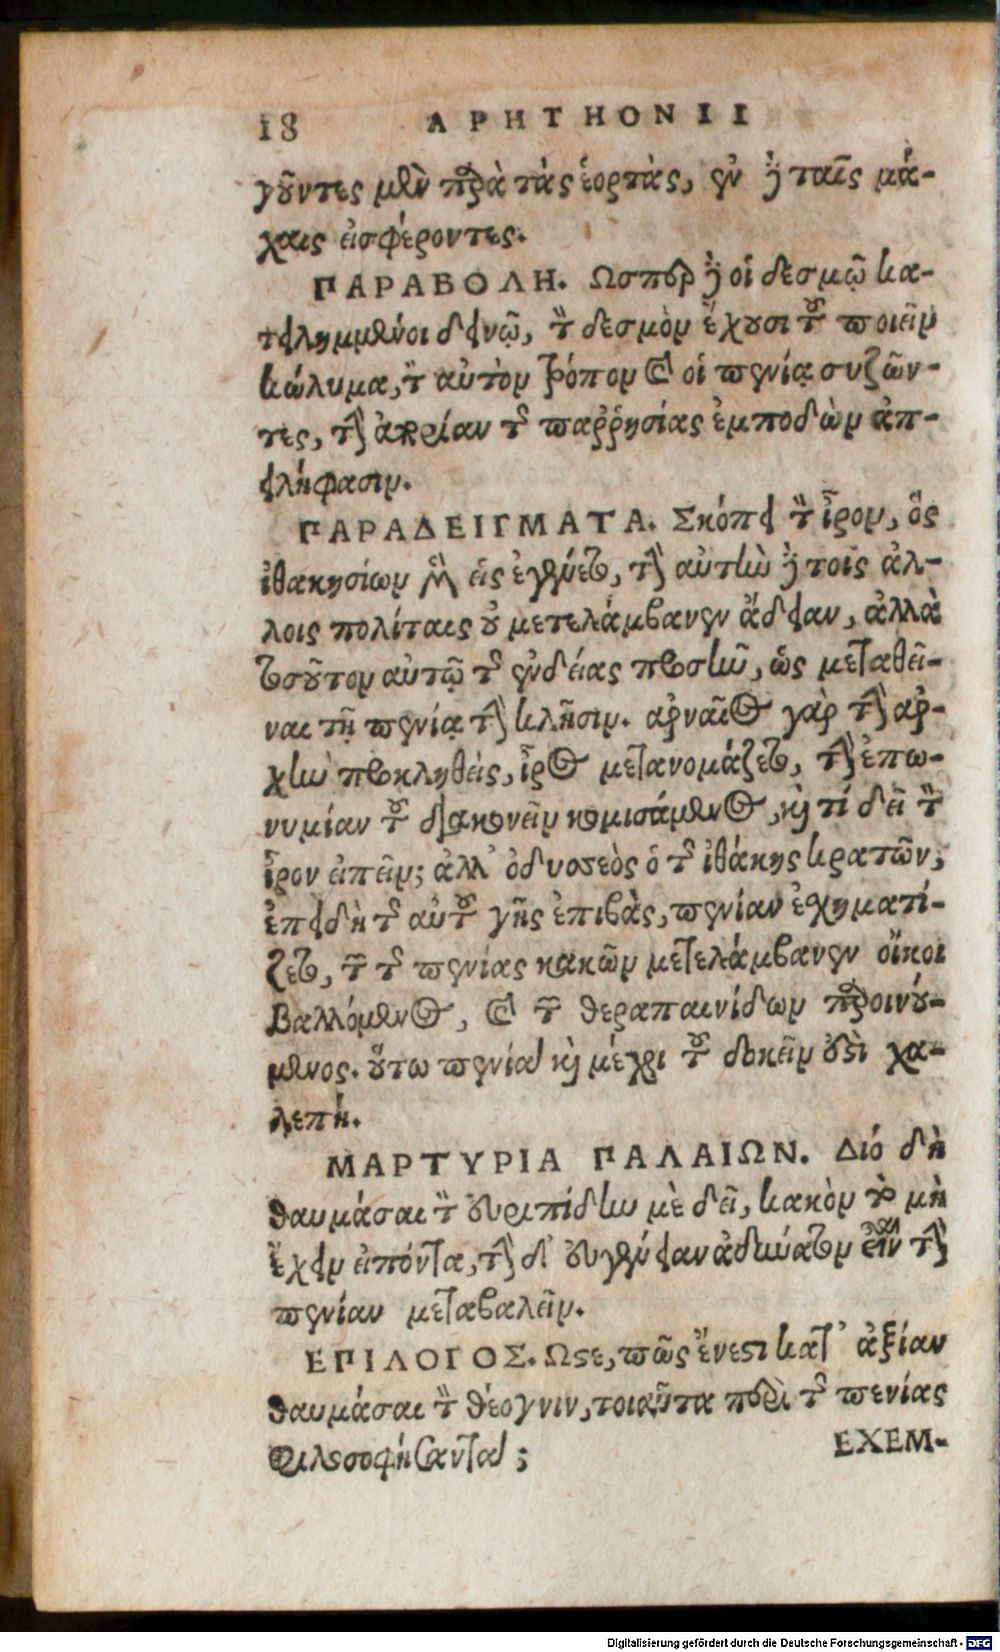 18 ΑΡΗΤΗΟΝΙΙ
γοῦντες μὲν παρὰ τὰς ἑορτὰς, ἐν δὲ ταῖς μά-
χαις εἰσφέροντες.
ΠΑΡΑΒΟΛΗ. Ωσπερ γὸ οἱ δεσμῷ κα-
τειλημμένοι δεινῷ, τὸν δεσμὸν ἔχουσι τοῦ ποιεῖν
κώλυμα, τὸν αὐτὸν τρόπον καὶ οἱ πενίᾳ συζῶν-
τες, τὴν ἀπορίαν τῆς παῤῥησίας ἐμποδὼν ἀπ-
ειλήφασιν.
ΠΑΡΑΔΕΙΓΜΑΤΑ. Σκόπει τὸν ἶρον, ὃς
ἰθακησίων μὲν εἷς ἐγένετο, τὴν αὐτὴν δὲ τοῖς ἀλ-
λοις πολίταις οὐ μετελάμβανεν ἄδειαν, ἀλλὰ
τοσοῦτον αὐτῷ τῆς ἐνδείας προσῆν, ὡς μεταθεῖ-
ναι τῇ πενίᾳ τὴν κλῆσιν. ἀρναῖος γὰρ τὴν ἀρ-
χὴν προκληθεὶς, ἶρος μετανομάζετο, τὴν ἐπω-
νυμίαν τοῦ διακονεῖν κομισάμενος, καὶ τί δεῖ τὸν
ἶρον εἰπεῖν; ἀλλ' ὀδυσσεὸς ὁ τῆς ἰθάκης κρατῶν,
ἐπειδὴ τῆς αὐτοῦ γῆς ἐπιβὰς, πενίαν ἐσχηματί-
ζετο, τῶν τῆς πενίας κακῶν μετελάμβανεν οἴκοι
βαλλόμενος, καὶ τῶν θεραπαινίδων παροινού-
μενος. οὕτω πενία καὶ μέχρι τοῦ δοκεῖν ἐστὶ χα-
λεπή.
ΜΑΡΤΥΡΙΑ ΠΑΛΑΙΩΝ. Διό δὴ
θαυμάσαι τὸν εὐριπίδην με δεῖ, κακὸν τὸ μὴ
ἔχειν εἰπόντα, τὴν δ' εὐγένειαν ἀδύνατον εἶναι τὴν
πενίαν μεταβαλεῖν.
ΕΠΙΛΟΓΟΣ. Ωστε, πῶς ἔνεστι κατ' ἀξίαν
θαυμάσαι τὸν θέογνιν, τοιαῦτα περὶ τῆς πενίας
φιλοσοφήσαντα;
EXEM-
Digitalisierung gefördert durch die Deutsche Forschungsgemeinschaft - DFG